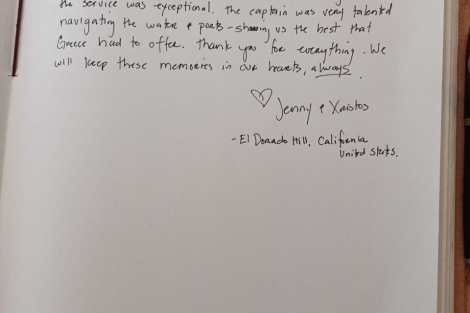 the service was exceptional. The captain was very talented
navigating the water & ports - showing us the best that
Greece had to offer. Thank you for everything. We
will keep these memories in our hearts, always.
♡ Jenny & Xristos
- El Dorado Hill, California
United States.